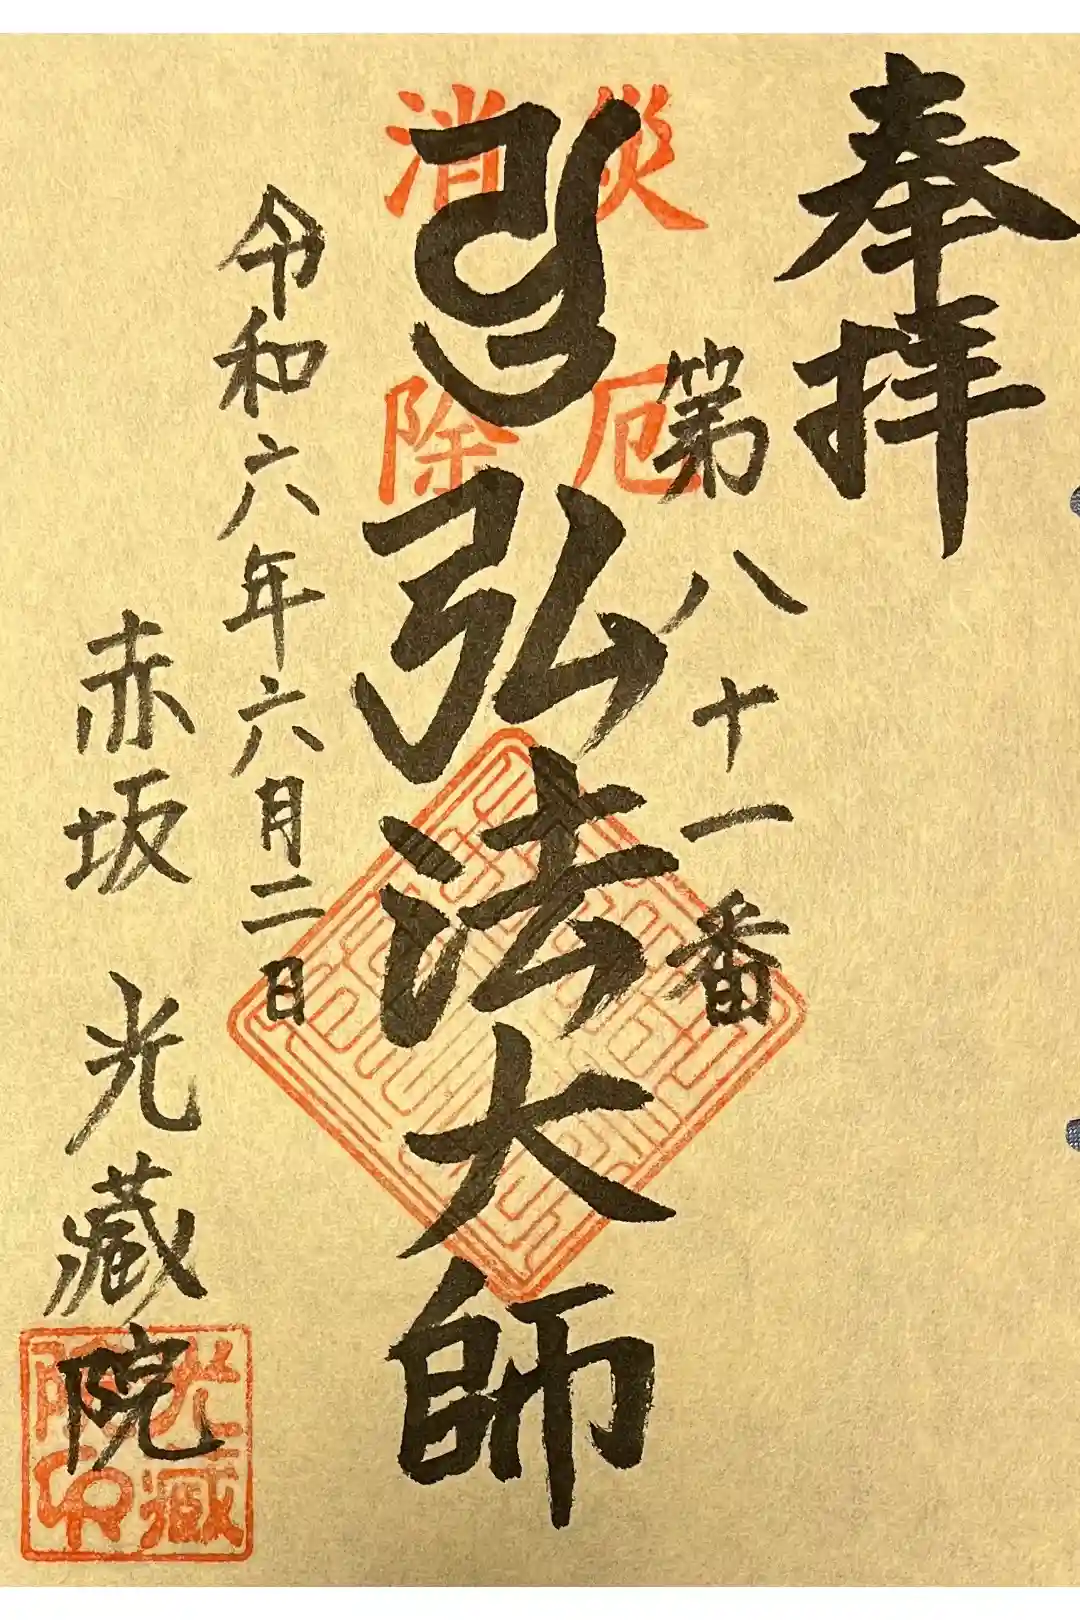 奉拝
第八十一番
災厄
消除
弘法大師
令和六年六月二日
赤坂 光蔵院
光蔵
院印